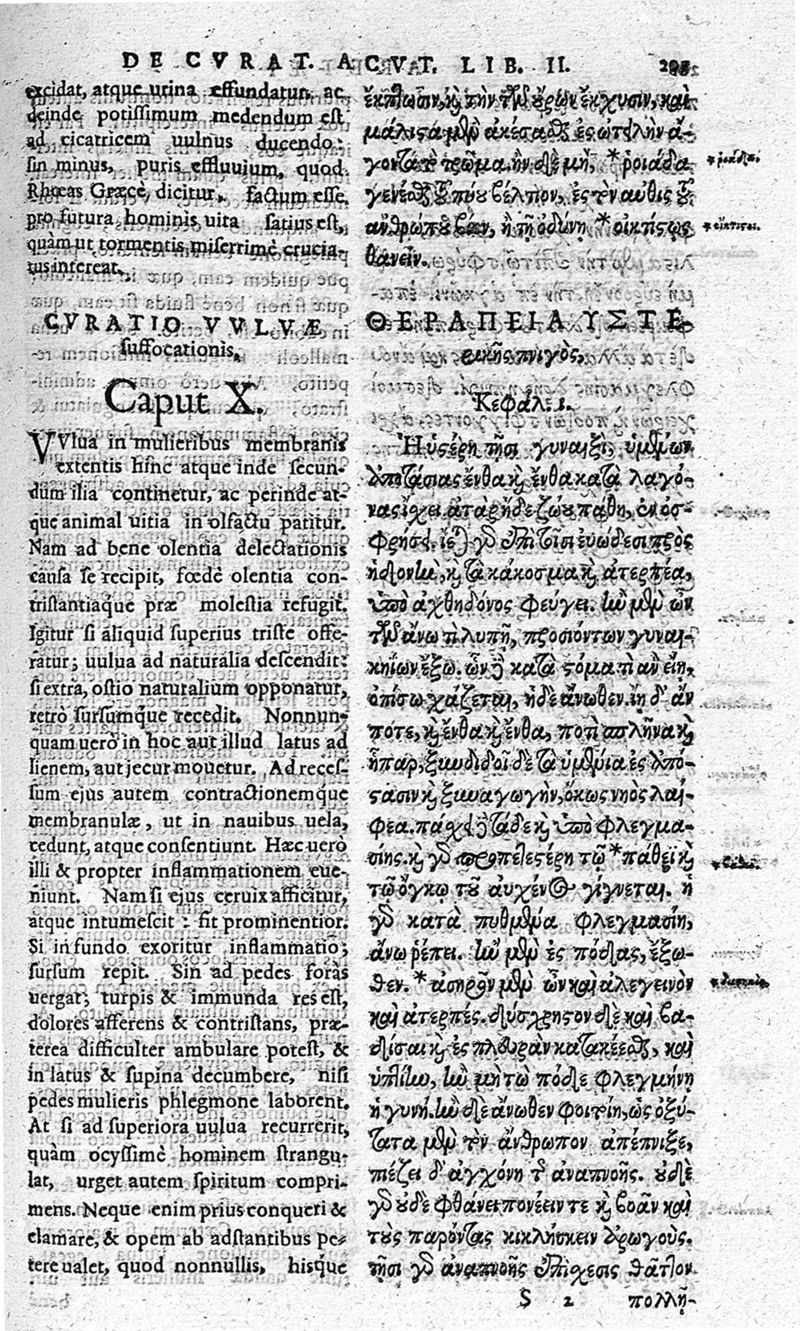 DE CVRAT. ACVT. LIB. II.
excidat, atque urina effundatur, ac
deinde potissimum medendum est
ad cicatricem uulnus ducendo:
sin minus, puris effluuium, quod
Rhœas Græcè, dicitur, factum esse,
pro futura hominis uita satius est,
quàm ut tormentis miserrimè crucia-
tus intereat.
CVRATIO VVLVÆ
suffocationis,
Caput X.
VVlua in mulieribus membranis
extentis hinc atque inde secun-
dùm ilia continetur, ac perinde at-
que animal uitia in olfactu patitur.
Nam ad bene olentia delectationis
causa se recipit, fœdè olentia con-
tristantiaque præ molestia refugit.
Igitur si aliquid superius triste offe-
ratur; uulua ad naturalia descendit:
si extra, ostio naturalium opponatur,
retrò sursumque recedit. Nonnun-
quam uerò in hoc aut illud latus ad
lienem, aut jecur mouetur. Ad reces-
sum ejus autem contractionemque
membranulæ, ut in nauibus uela,
cedunt, atque consentiunt. Hæc uerò
illi & propter inflammationem eue-
niunt. Nam si ejus ceruix afficitur,
atque intumescit: fit prominentior.
Si in fundo exoritur inflammatio;
sursum repit. Sin ad pedes foras
uergat; turpis & immunda res est,
dolores afferens & contristans, præ-
terea difficulter ambulare potest, &
in latus & supina decumbere, nisi
pedes mulieris phlegmone laborent.
At si ad superiora uulua recurrerit,
quàm ocyssimè hominem strangu-
lat, urget autem spiritum compri-
mens. Neque enim prius conqueri &
clamare, & opem ab adstantibus pe-
tere ualet, quod nonnullis, hisque
ἔκπτωσιν, καὶ τὴν τῶν οὔρων ἔκχυσιν, καὶ
μάλιστα μὲν ἀκέσασθαι ἐς ὠτειλὴν ἄ-
γοντα τὸ τρῶμα. ἢν δὲ μὴ, *ῥοιάδα
γενέσθαι πύου βέλτιον, ἐς τὴν αὖθις τοῦ
ἀνθρώπου βίην, ἢ τῇ ὀδύνῃ *οἰκτίστως
θανεῖν.
ΘΕΡΑΠΕΙΑ ΥΣΤΕ-
ρικῆς πνιγὸς,
Κεφάλ: ι.
Ἡ ὑστέρη τῇσι γυναιξὶ, ὑμένων
ἀποτάσιας ἔνθα καὶ ἔνθα κατὰ λαγό-
νας ἴσχει. ἀτὰρ ἠδὲ ζώου πάθη, ἐν ὀσ-
φρήσει. ἵεται γὰρ ἐπὶ τοῖσι εὐώδεσι πρὸς
ἡδονὴν, καὶ τὰ κάκοσμα καὶ ἀτερπέα,
ὑπὸ ἀχθηδόνος φεύγει. ἢν μὲν ὦν
τῶν ἄνω τὶ λυπῇ, προσιόντων γυναι-
κηίων ἔξω. ὧν δὲ κατὰ στόμα τὶ ἂν εἴη,
ὀπίσω χάζεται, ἠδὲ ἄνωθεν. ἴῃ δ' ἄν
ποτε, καὶ ἔνθα καὶ ἔνθα, ποτὶ σπλῆνα καὶ
ἧπαρ, ξυνδιδοῖ δὲ τὰ ὑμένια ἐς ἀπό-
τασιν καὶ ξυναγωγὴν, ὅκως νηὸς λαί-
φεα. πάσχει δὲ τάδε καὶ ὑπὸ φλεγμα-
σίης. καὶ γὰρ προπελεστέρη τῷ *παθεῖ καὶ
τῷ ὄγκῳ τοῦ αὐχένος γίγνεται. ἡ
γὰρ κατὰ πυθμένα φλεγμασίη,
ἄνω ῥέπει. ἢν μὲν ἐς πόδας, ἔξω-
θεν. *ἀσηρὸν μὲν ὦν καὶ ἀλεγεινὸν
καὶ ἀτερπές. δύσχρηστον δὲ καὶ βα-
δίσαι καὶ ἐς πλευρὰν κατακέεσθαι, καὶ
ὑπτίην, ἢν μὴ τὼ πόδε φλεγμήνῃ
ἡ γυνή. ἢν δὲ ἄνωθεν φοιτέῃ, ὡς ὀξύ-
τατα μὲν τὴν ἄνθρωπον ἀπέπνιξε,
πιέζει δ' ἀγχόνῃ τὰς ἀναπνοῆς. οὐδὲ
γὰρ οὐδὲ φθάνει πονέειν τε καὶ βοᾶν καὶ
τοὺς παρόντας κικλήσκειν ἀρωγούς.
τῇσι γὰρ ἀναπνοῆς ἐπίσχεσις θᾶττον
S 2 πολλῇ-